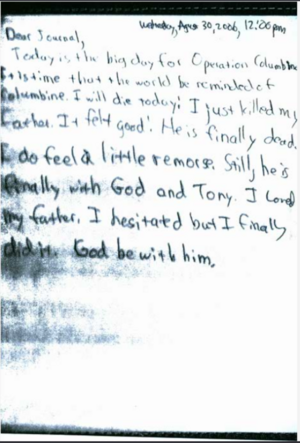 Wednesday, Agus 30, 2006, 12:06pm
Dear Journal,
Today is the big day for Operation Columbine
It is time that the world be reminded of
Columbine. I will die today; I just killed my
Father. It felt good! He is finally dead.
I do feel a little remorse. Still, he is
finally with God and Tony. I loved
my father. I hesitated but I finally
did it. God be with him.